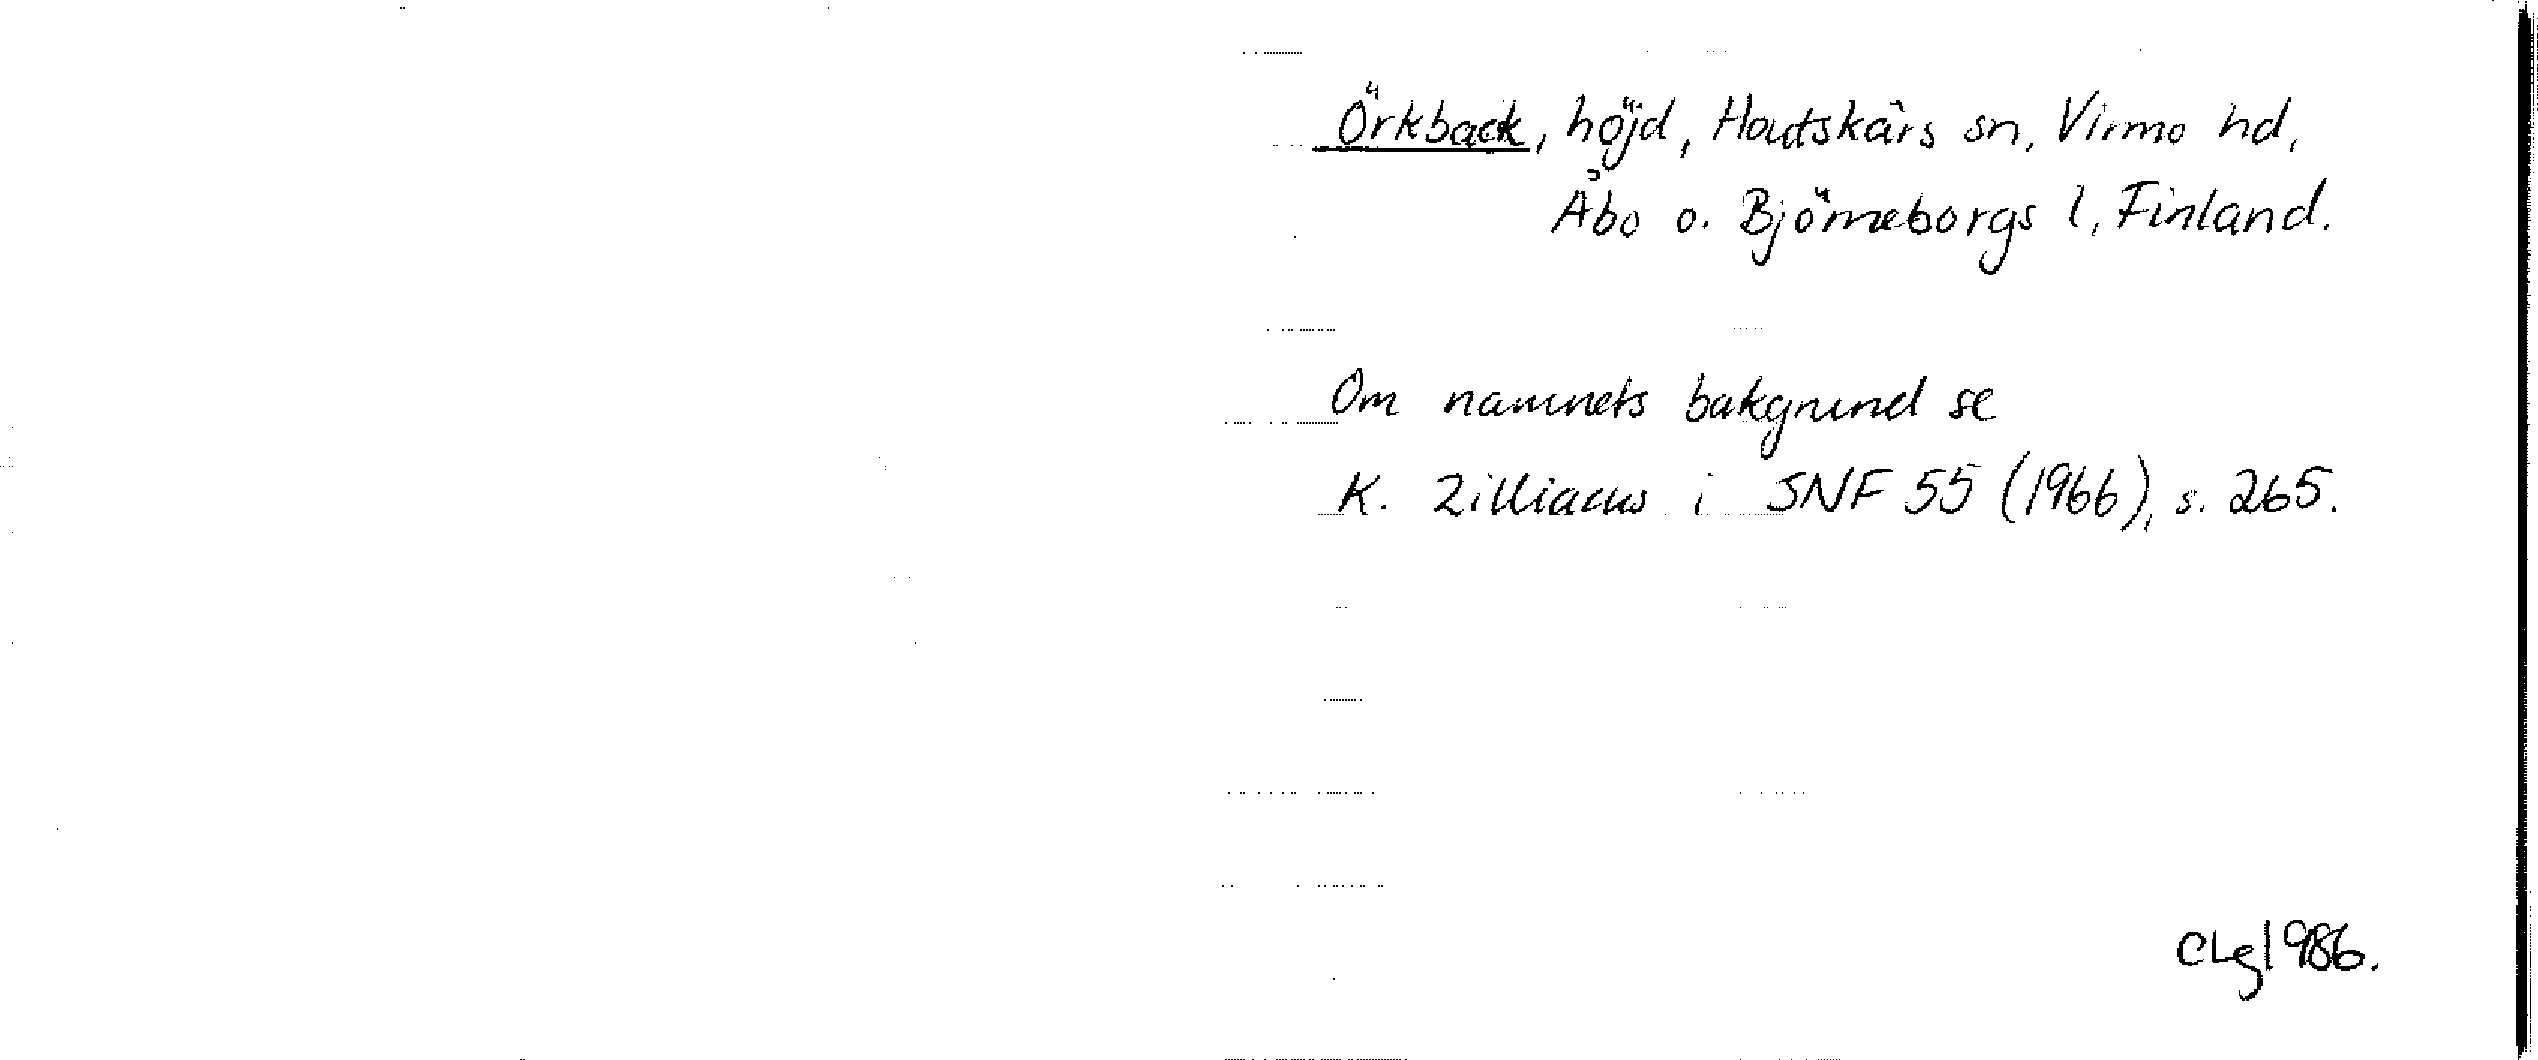 Örkback, höjd, Houtskärs sn, Virmo hd,
Åbo o. Björneborgs l, Finland.
Om namnets bakgrund se
K. Zilliacus i SNF 55 (1966), s. 265.
CLg 1986.